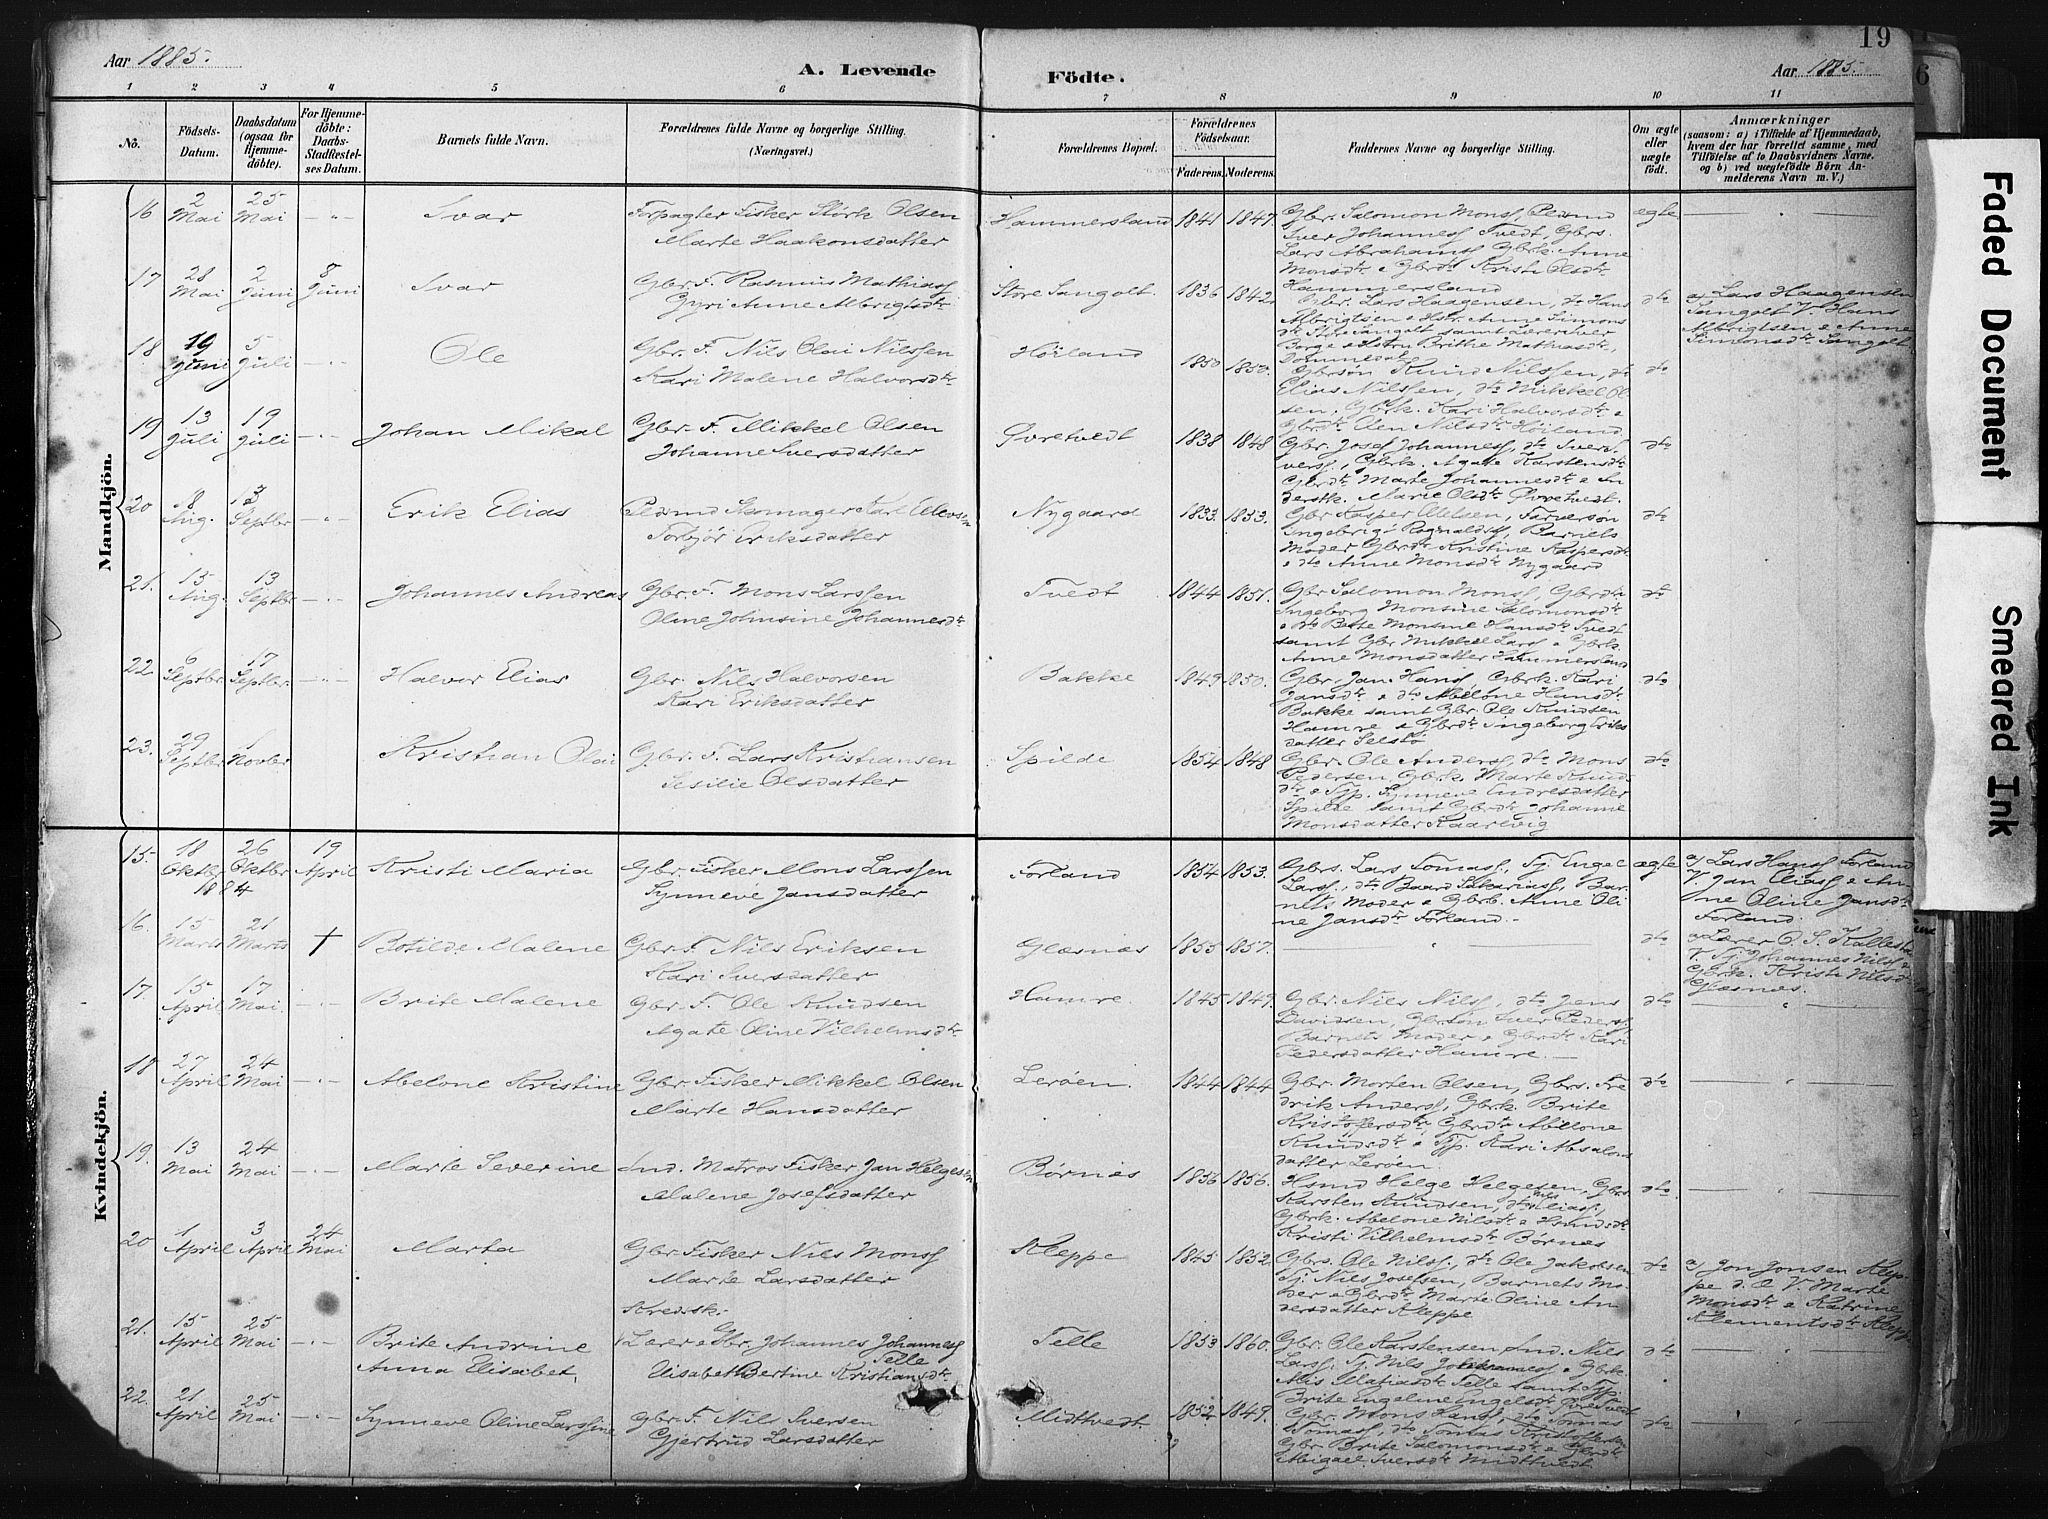 Aar 1885.
A. Levende Födte.
Aar 1885.
19
6
1 2 3 4 5 6 7 8 9 10 11
No.
Födsels-Datum.
Daabsdatum (ogsaa for Hjemme-döbte).
For Hjemme-döbte: Daabs-Stadfæstel-ses Datum.
Barnets fulde Navn.
Forældrenes fulde Navne og borgerlige Stilling.
(Næringsvei.)
Forældrenes Bopæl.
Forældrenes Födselsaar.
Faderens. Moderens.
Faddernes Navne og borgerlige Stilling.
Om ægte eller uægte födt.
Anmærkninger
(saasom: a) i Tilfælde af Hjemmedaab,
hvem der har forrettet samme, med
Tilföielse af to Daabsvidners Navne,
og b) ved uægtefödte Börn An-
melderens Navn m. V.)
Mandkjön.
16 2 Mai 25 Mai Ivar Forpagter Fisker Størk Olsen
Marte Haakonsdatter
Hammersland 1841 1847. Gbr. Salomon Mons
Iver Johannes Tvedt, Gbrs.
Lars Abrahams Gbrk. Anne
Monsdtr & Gbrdtr Kristi Olsdtr
Hammersland
ægte
17 28 Mai 2 Juni 8 Juni Ivar Gbr. F. Rasmus Mathias
Gyri Anne Albrigtsdtr
Store Sangolt. 1836 1842. Gbr. Lars Haagensen, dto Hans
Albrigtsen & Anne Simons
dtr Store Sangolt samt Lærer Iver
Borge & Brithe Mathiasdtr,
dto
a) Lars Haagensen
Sangolt V. Hans
Albrigtsen & Anne
Simonsdtr Sangolt.
18 19 Juni 5 Juli Ole Gbr. F. Nils Olai Nilssen
Kari Malene Halvorsdtr
Höiland 1850 1850. Gbrsøn Knud Nilssen, dto
Elias Nilssen, dto Mikkel Ol
sen, Gbrk. Kari Halvorsdtr &
Gbrdtr Nilsdtr Höiland.
dto
19 13 Juli 19 Juli Johan Mikal Gbr. F. Mikkel Olsen
Johanne Iversdatter
Øvretvedt 1838 1848 Gbr. Josef Johannes, dto Iver
Ivers, Gbrk. Agate Karstensdtr
Gbrdtr Marte Johannesdtr &
Marie Olsdtr Øvretvedt.
dto
20 8 Aug. 13 Septbr Erik Elias Skomager Karl
Torbjør Eriksdatter
Nygaard 1833. 1853. Gbr Kasper
Ingebrigt Ragnalds, Barnets
Moder Gbrdtr Kristine Kaspersdtr
& dto Anne Monsdtr Nygaard
dto
21. 15 Aug. 13 Septbr Johannes Andreas Gbr. F. Mons Larssen
Oline Johnsine Johannesdtr
Tvedt 1844 1851. Gbr Salomon Mons, Gbrdtr
Ingeborg Monsine Salomonsdtr
& dto Berte Monsine Hansdtr Tvedt
samt Gbr Mikkel Lars & Gbrk.
Anne Monsdatter Hammersland
dto
22. 6 Septbr 17 Septbr. Halvor Elias Gbr. Nils Halvorsen
Kari Eriksdatter
Bakke 1849 1850. Gbr. Jan Hans, Gbrk. Kari
Jansdtr & dto Abelone Hansdtr
Bakke samt Gbr. Ole Knudsen
Hamre & Gbrdtr Ingeborg Eriks
datter Selstø
dto
23. 29 Septbr. 1 Novbr Kristian Olai Gbr. F. Lars Kristiansen
Sesilie Olsdatter
Spilde 1854 1848 Gbr. Ole Anders, dto Mons
Pedersen, Gbrk. Marte Knuds
dtr & Tjp. Synneve Endresdatter
Spilde samt Gbrdtr Johanne
Monsdatter Kaarevig
dto
Kvindekjön.
15. 18 Oktbr 1884 26 Oktbr 19 April Kristi Maria Gbr. Fisker Mons Larssen
Synneve Jansdatter
Forland 1854 1853. Gbrs. Lars Tomas, Tj. Engel
Lars, dto Baard Sakarias, Bar-
nets Moder & Gbrk. Anne Oli
ne Jansdtr Forland. -
ægte
a) Lars Hans Forland
V. Jan Elias & An-
ne Oline Jansdtr
Forland.
16. 15 Marts 21 Marts † Botilde Malene Gbr. F. Nils Eriksen
Kari Iversdatter
Glæsnæs 1855 1857.
dto
a) Lærer O. S. Kallestad
V. Tj. Johannes Nils &
Gbrk. Kristi Nilsdtr
Glæsnæs.
17. 15 April 17 Mai. Brite Malene Gbr. F. Ole Knudsen
Agate Oline Vilhelmsdtr
Hamre. 1845 1849. Gbr. Niels Nils, dto Jens
Davidsen, Gbrsøn Iver Peders
Barnets Moder & Gbrdtr Kari
Pedersdatter Hamre. -
dto
18 27 April 24 Mai Abelone Kristine Gbr. Fisker Mikkel Olsen
Marte Hansdatter
Lerøen. 1844 1844 Gbr. Morten Olsen, Gbrs. Fre
drik Anders, Gbrk. Brite
Kristofersdtr Gbrdtr Abelone
Knudsdtr & Tjp. Kari Absalons
datter Lerøen.
dto
19. 13 Mai 24 Mai Marte Severine Ind. Matros Fisker Jan Helgesen
Malene Josefsdatter
Børnæs 1856 1856. Hsmd Helge Helgesen, Gbrs.
Karsten Knudsen, dto Nils Elias,
Gbrk. Abelone Nilsdtr & Hsmdsdtr
Kristi Vilhelmsdtr Børnæs
dto.
20 1 April 3 April 24 Mai Marta Gbr. Fisker Nils Mons
Marte Larsdatter
Kleppe 1845 1852. Gbrs. Ole Nils, dto Ole Jakobsen
Tj. Nils Josefsen, Barnets Mo-
der & Gbrdtr Marte Oline An
dersdatter Kleppe
dto
a) Jon Jonsen Klep-
pe d. O V. Marte
Monsdtr & Katrine
Klementsdtr Kleppe
21. 15 April 25 Mai Brite Andrine
Anna Elisabet,
Kredsk.
Lærer & Gbr. Johannes Johannes
Telle
Elisabeth Bertine Kristiansdtr
Telle 1853 1860. Gbr. Ole Karstensen Ind. Nils
Lars, Tj. Nils Johannes & Gbrk.
Matiasdtr Telle samt Tjp.
Brite Engeline Engelsdtr Øvretvedt
dto
22. 21 April 25 Mai Synneve Oline Larssine Gbr. F. Nils Iversen
Gjertrud Larsdatter
Midttvedt 1852 1849. Gbr. Mons Hans, dto Tomas
Tomas, dto Tomas Kristoffersen
Gbr Brite Salomonsdtr & Gbrdtr
Abigael Iversdtr Midttvedt.
dto
Faded Document
Smeared Ink